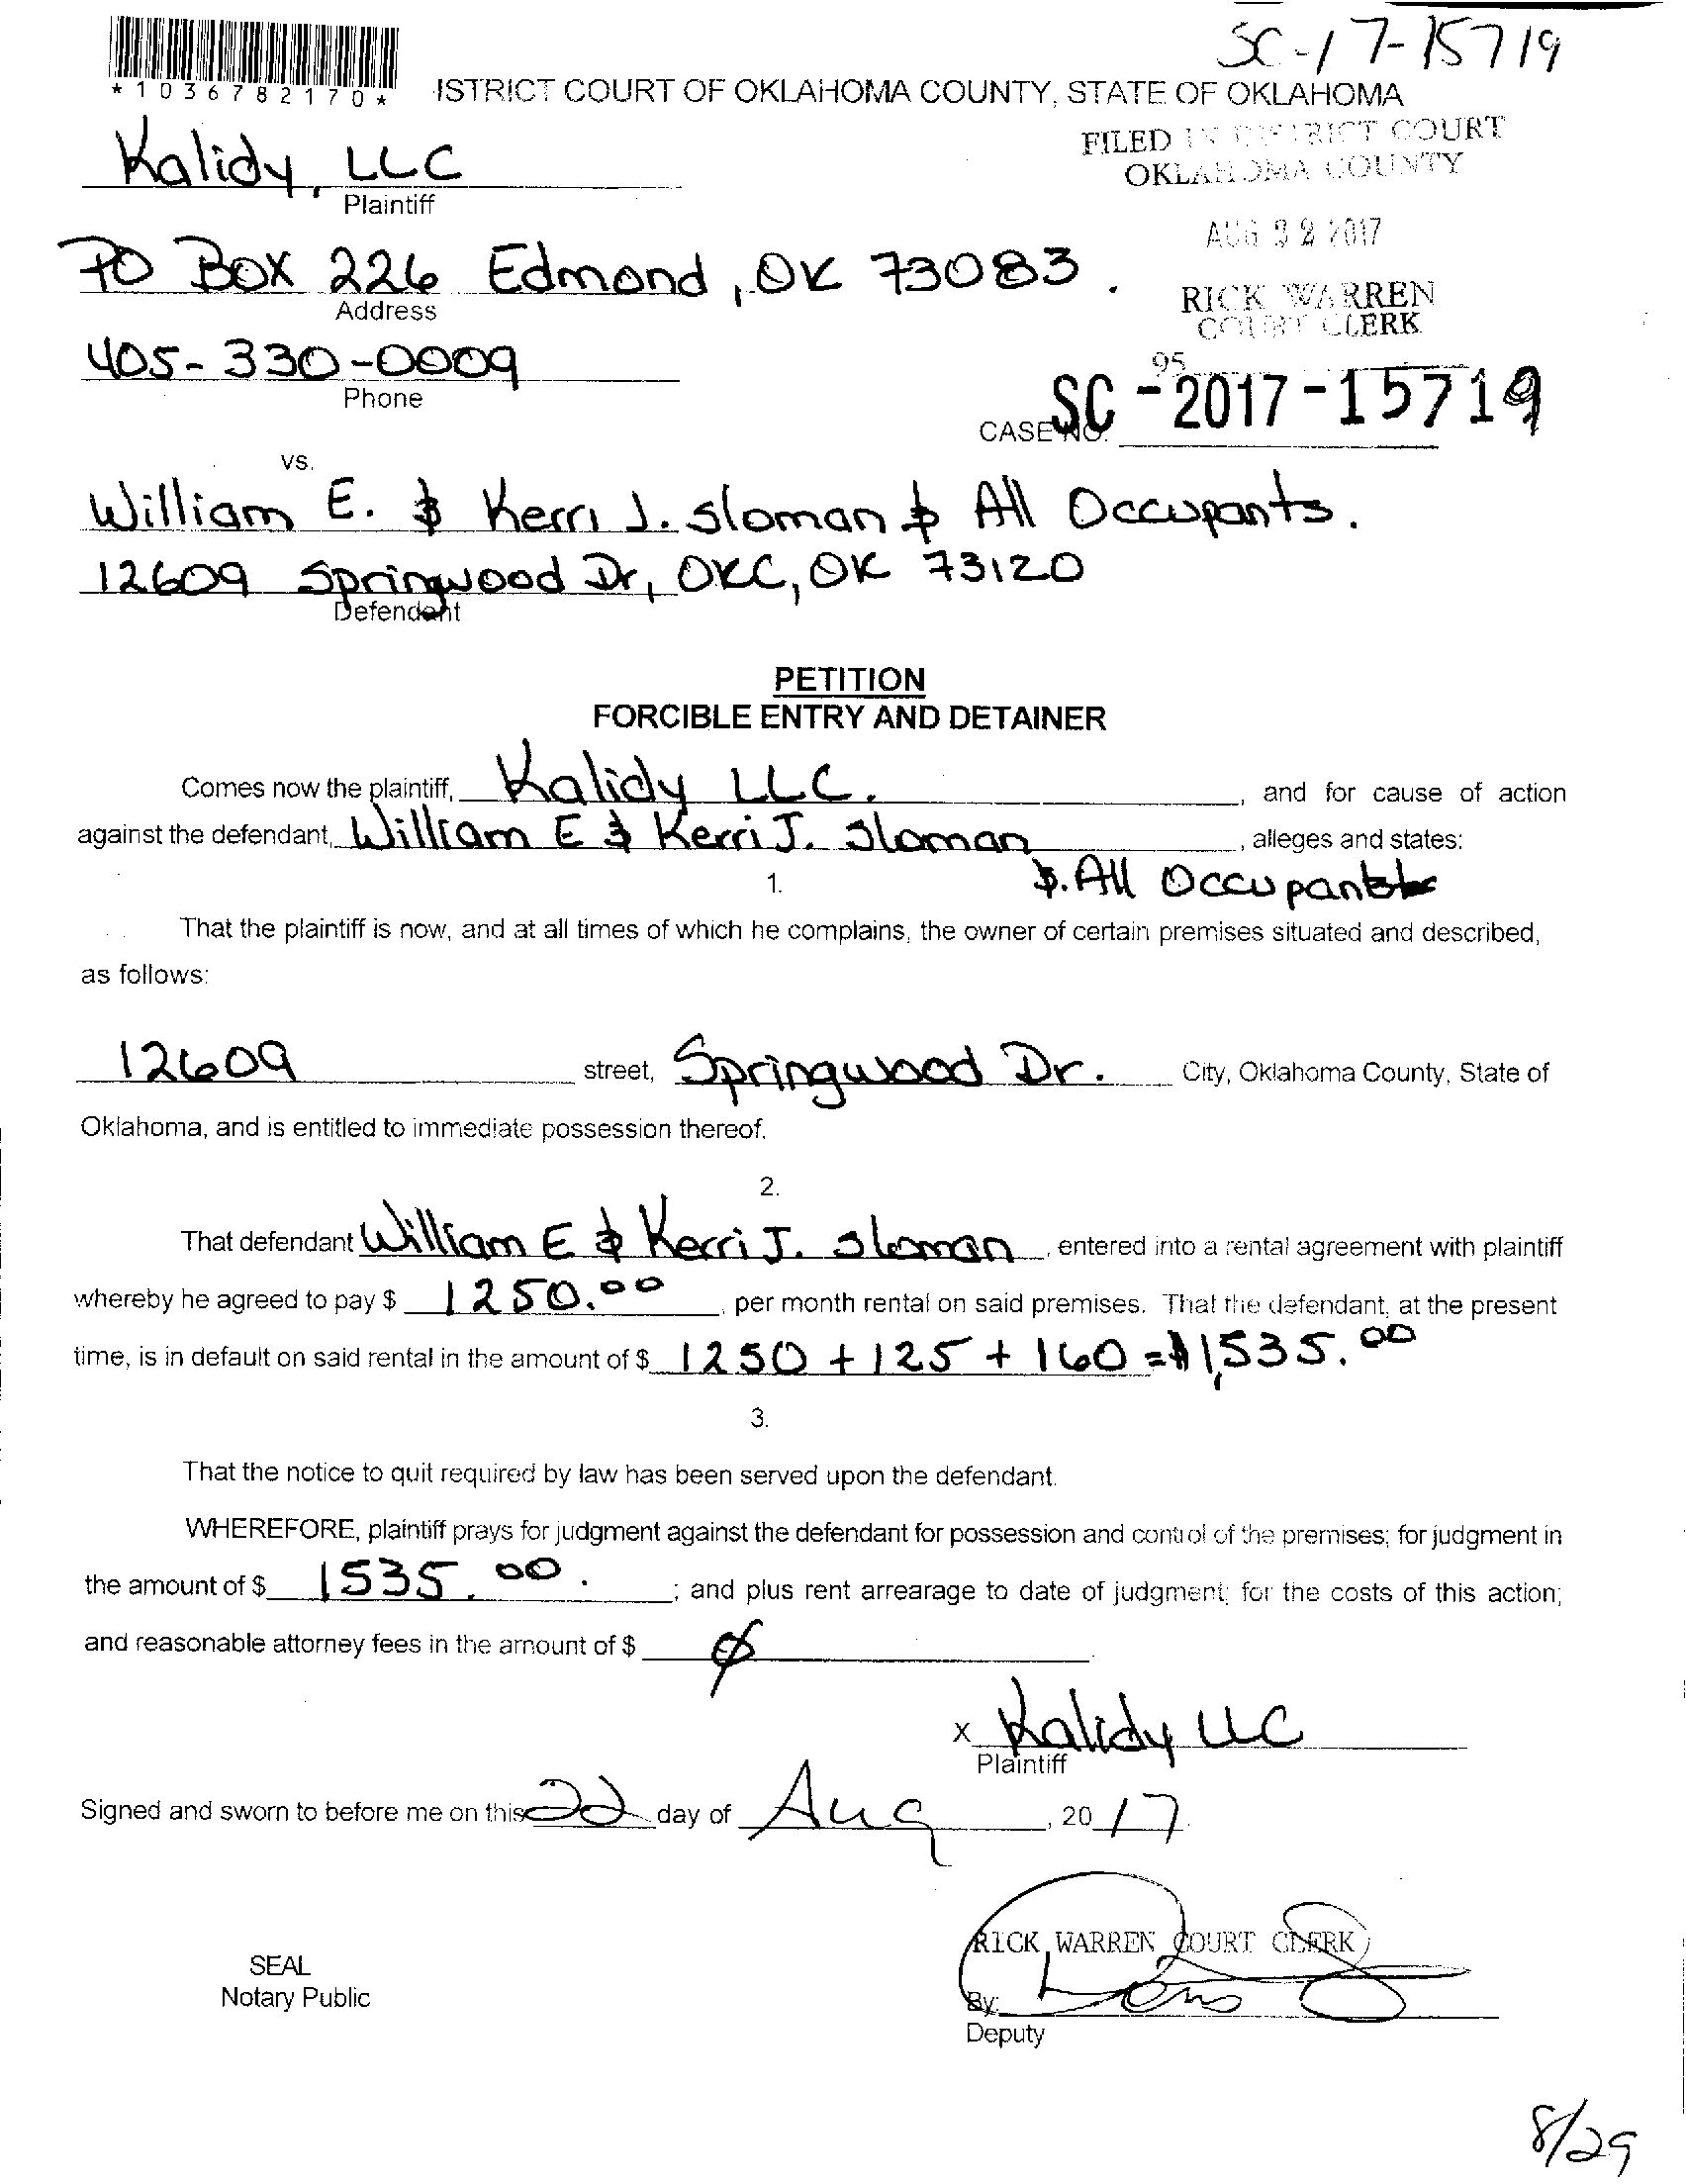 SC-17-15719
*1036782170*
ISTRICT COURT OF OKLAHOMA COUNTY, STATE OF OKLAHOMA
Kalidy, LLC
Plaintiff
FILED IN DISTRICT COURT
OKLAHOMA COUNTY
AUG 22 2017
PO BOX 226 Edmond, OK 73083.
Address
RICK WARREN
COURT CLERK
405-330-0009
Phone
95
CASE NO. SC-2017-15719
vs.
William E. & Kerri J. Sloman & All Occupants.
12609 Springwood Dr, OKC, OK 73120
Defendant
PETITION
FORCIBLE ENTRY AND DETAINER
Comes now the plaintiff, Kalidy LLC. , and for cause of action
against the defendant, William E & Kerri J. Sloman , alleges and states:
& All Occupants
1.
That the plaintiff is now, and at all times of which he complains, the owner of certain premises situated and described,
as follows:
12609 street, Springwood Dr. City, Oklahoma County, State of
Oklahoma, and is entitled to immediate possession thereof.
2.
That defendant William E & Kerri J. Sloman , entered into a rental agreement with plaintiff
whereby he agreed to pay $ 1250.00 , per month rental on said premises. That the defendant, at the present
time, is in default on said rental in the amount of $ 1250 + 125 + 160 = $1,535.00
3.
That the notice to quit required by law has been served upon the defendant.
WHEREFORE, plaintiff prays for judgment against the defendant for possession and control of the premises; for judgment in
the amount of $ 1535.00. ; and plus rent arrearage to date of judgment; for the costs of this action;
and reasonable attorney fees in the amount of $ ø
x Kalidy LLC
Plaintiff
Signed and sworn to before me on this 22 day of Aug , 20 17.
RICK WARREN COURT CLERK
SEAL
Notary Public
By:
Deputy
8/29